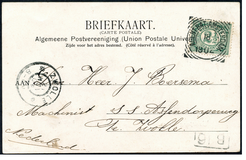 BRIEFKAART.
(CARTE POSTALE)
Algemeene Postvereeniging (Union Postale Universelle)
Zijde voor het adres bestemd. (Côté réservé à l'adresse).
AAN
den Heer J Boersema
Machinist s.s.
Te Zwolle
Nederland